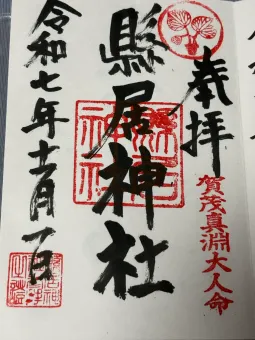 奉拝
賀茂真淵大人命
縣居神社
令和七年十一月一日